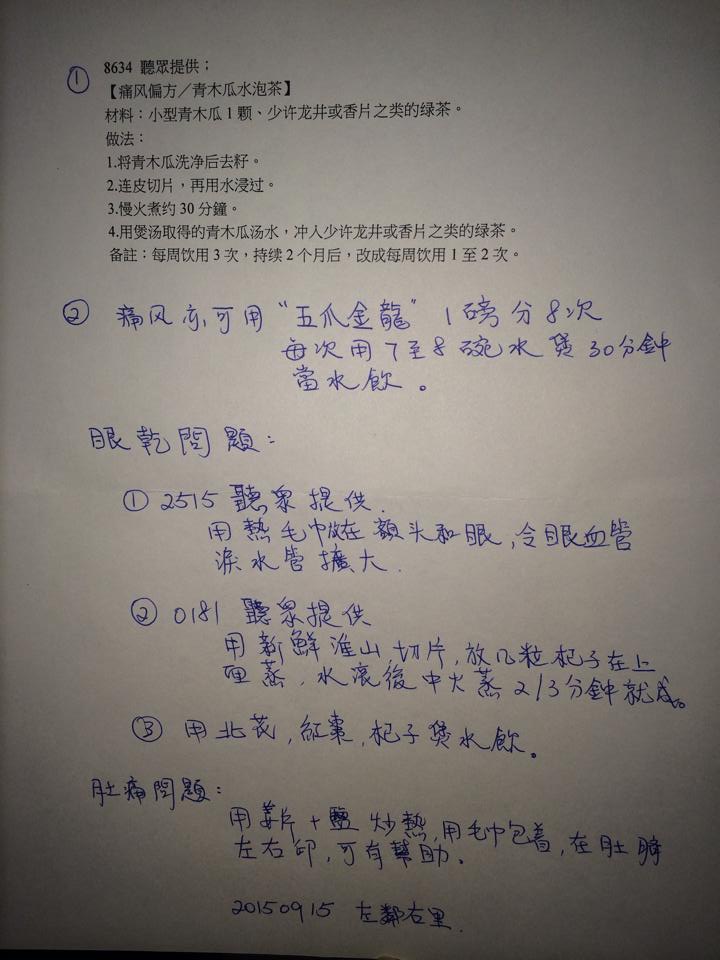 ① 8634 聽眾提供；
【痛风偏方／青木瓜水泡茶】
材料：小型青木瓜 1 颗、少许龙井或香片之类的绿茶。
做法：
1.将青木瓜洗净后去籽。
2.连皮切片，再用水浸过。
3.慢火煮约 30 分鐘。
4.用煲汤取得的青木瓜汤水，冲入少许龙井或香片之类的绿茶。
备註：每周饮用 3 次，持续 2 个月后，改成每周饮用 1 至 2 次。
② 痛风亦可用“五爪金龍” 1磅分8次
每次用7至8碗水煲30分鈡
當水飲。
眼乾問題：
① 2515 聽衆提供.
用熱毛巾放在額头和眼,令眼血管
淚水管擴大.
② 0181 聽衆提供
用新鮮淮山切片,放几粒杞子在上
里蒸,水滾後中火蒸2/3分鈡就成。
③ 用北芪,紅棗,杞子煲水飲。
肚痛問題：
用姜片+鹽炒熱,用毛巾包着,在肚臍
左右印,可有幫助.
20150915 左鄰右里.